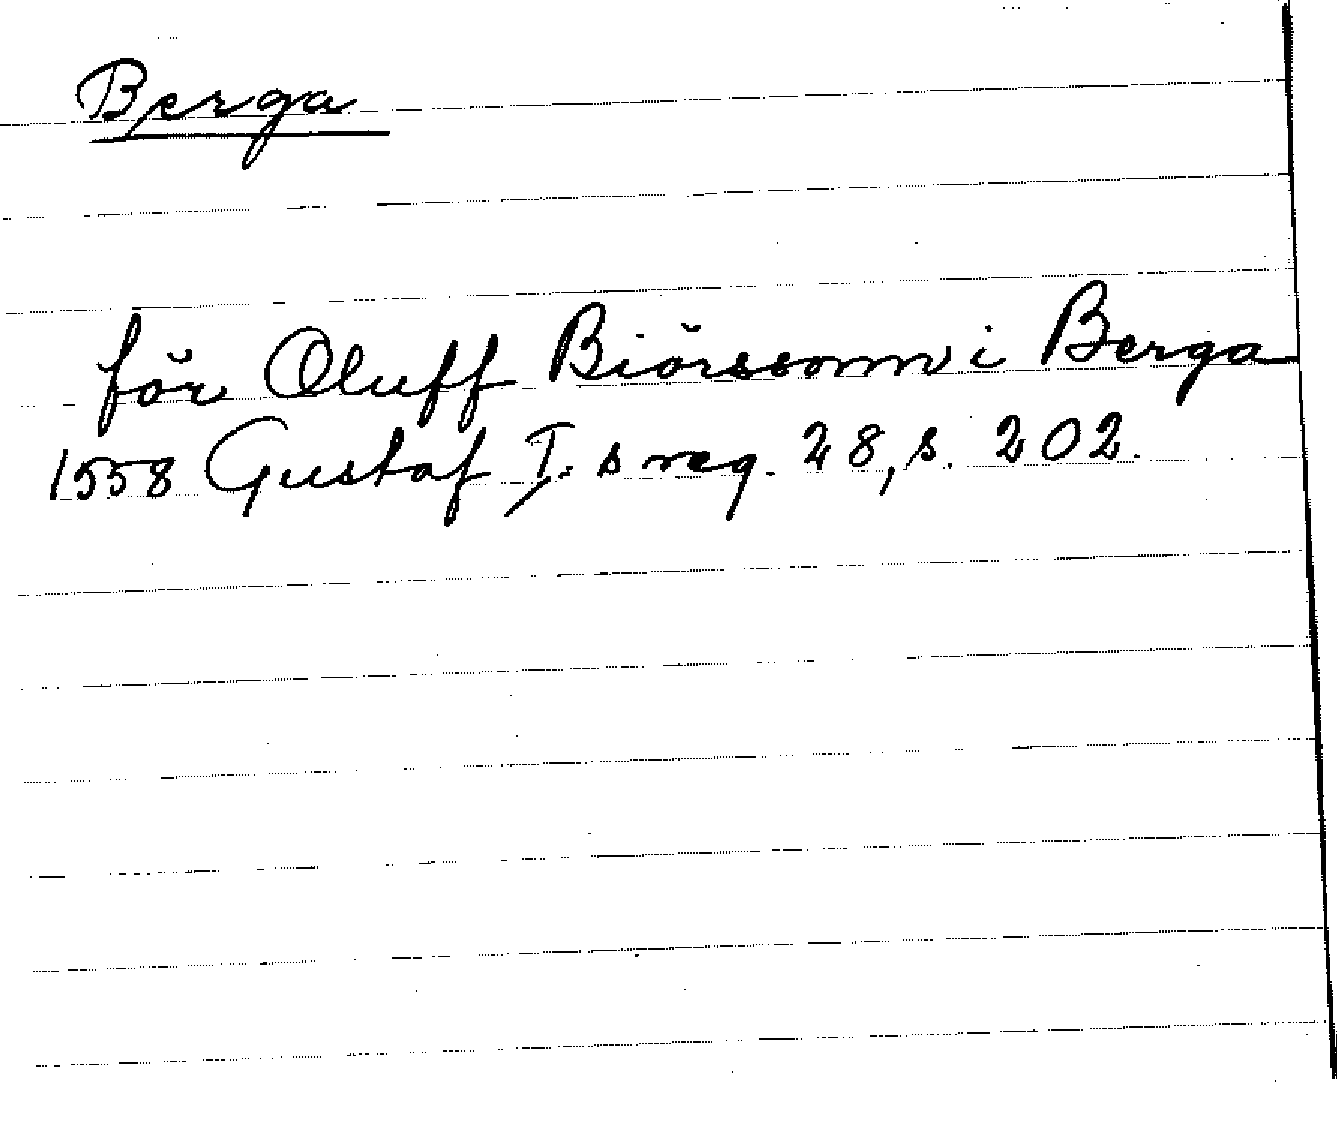 Berga
för Oluff Biörssonn i Berga
1558 Gustaf I:s reg. 28, s. 202.